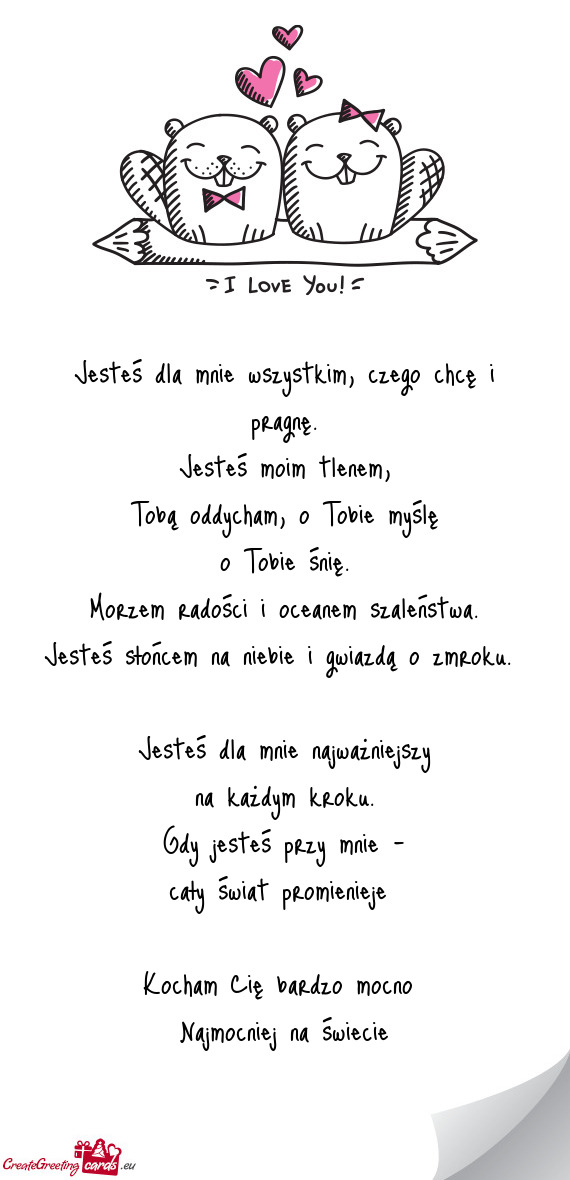 I LOVE YOU!
Jesteś dla mnie wszystkim, czego chcę i
pragnę.
Jesteś moim tlenem,
Tobą oddycham, o Tobie myślę
o Tobie śnię.
Morzem radości i oceanem szaleństwa.
Jesteś słońcem na niebie i gwiazdą o zmroku.
Jesteś dla mnie najważniejszy
na każdym kroku.
Gdy jesteś przy mnie -
cały świat promienieje
Kocham Cię bardzo mocno
Najmocniej na świecie
CreateGreeting cards .eu